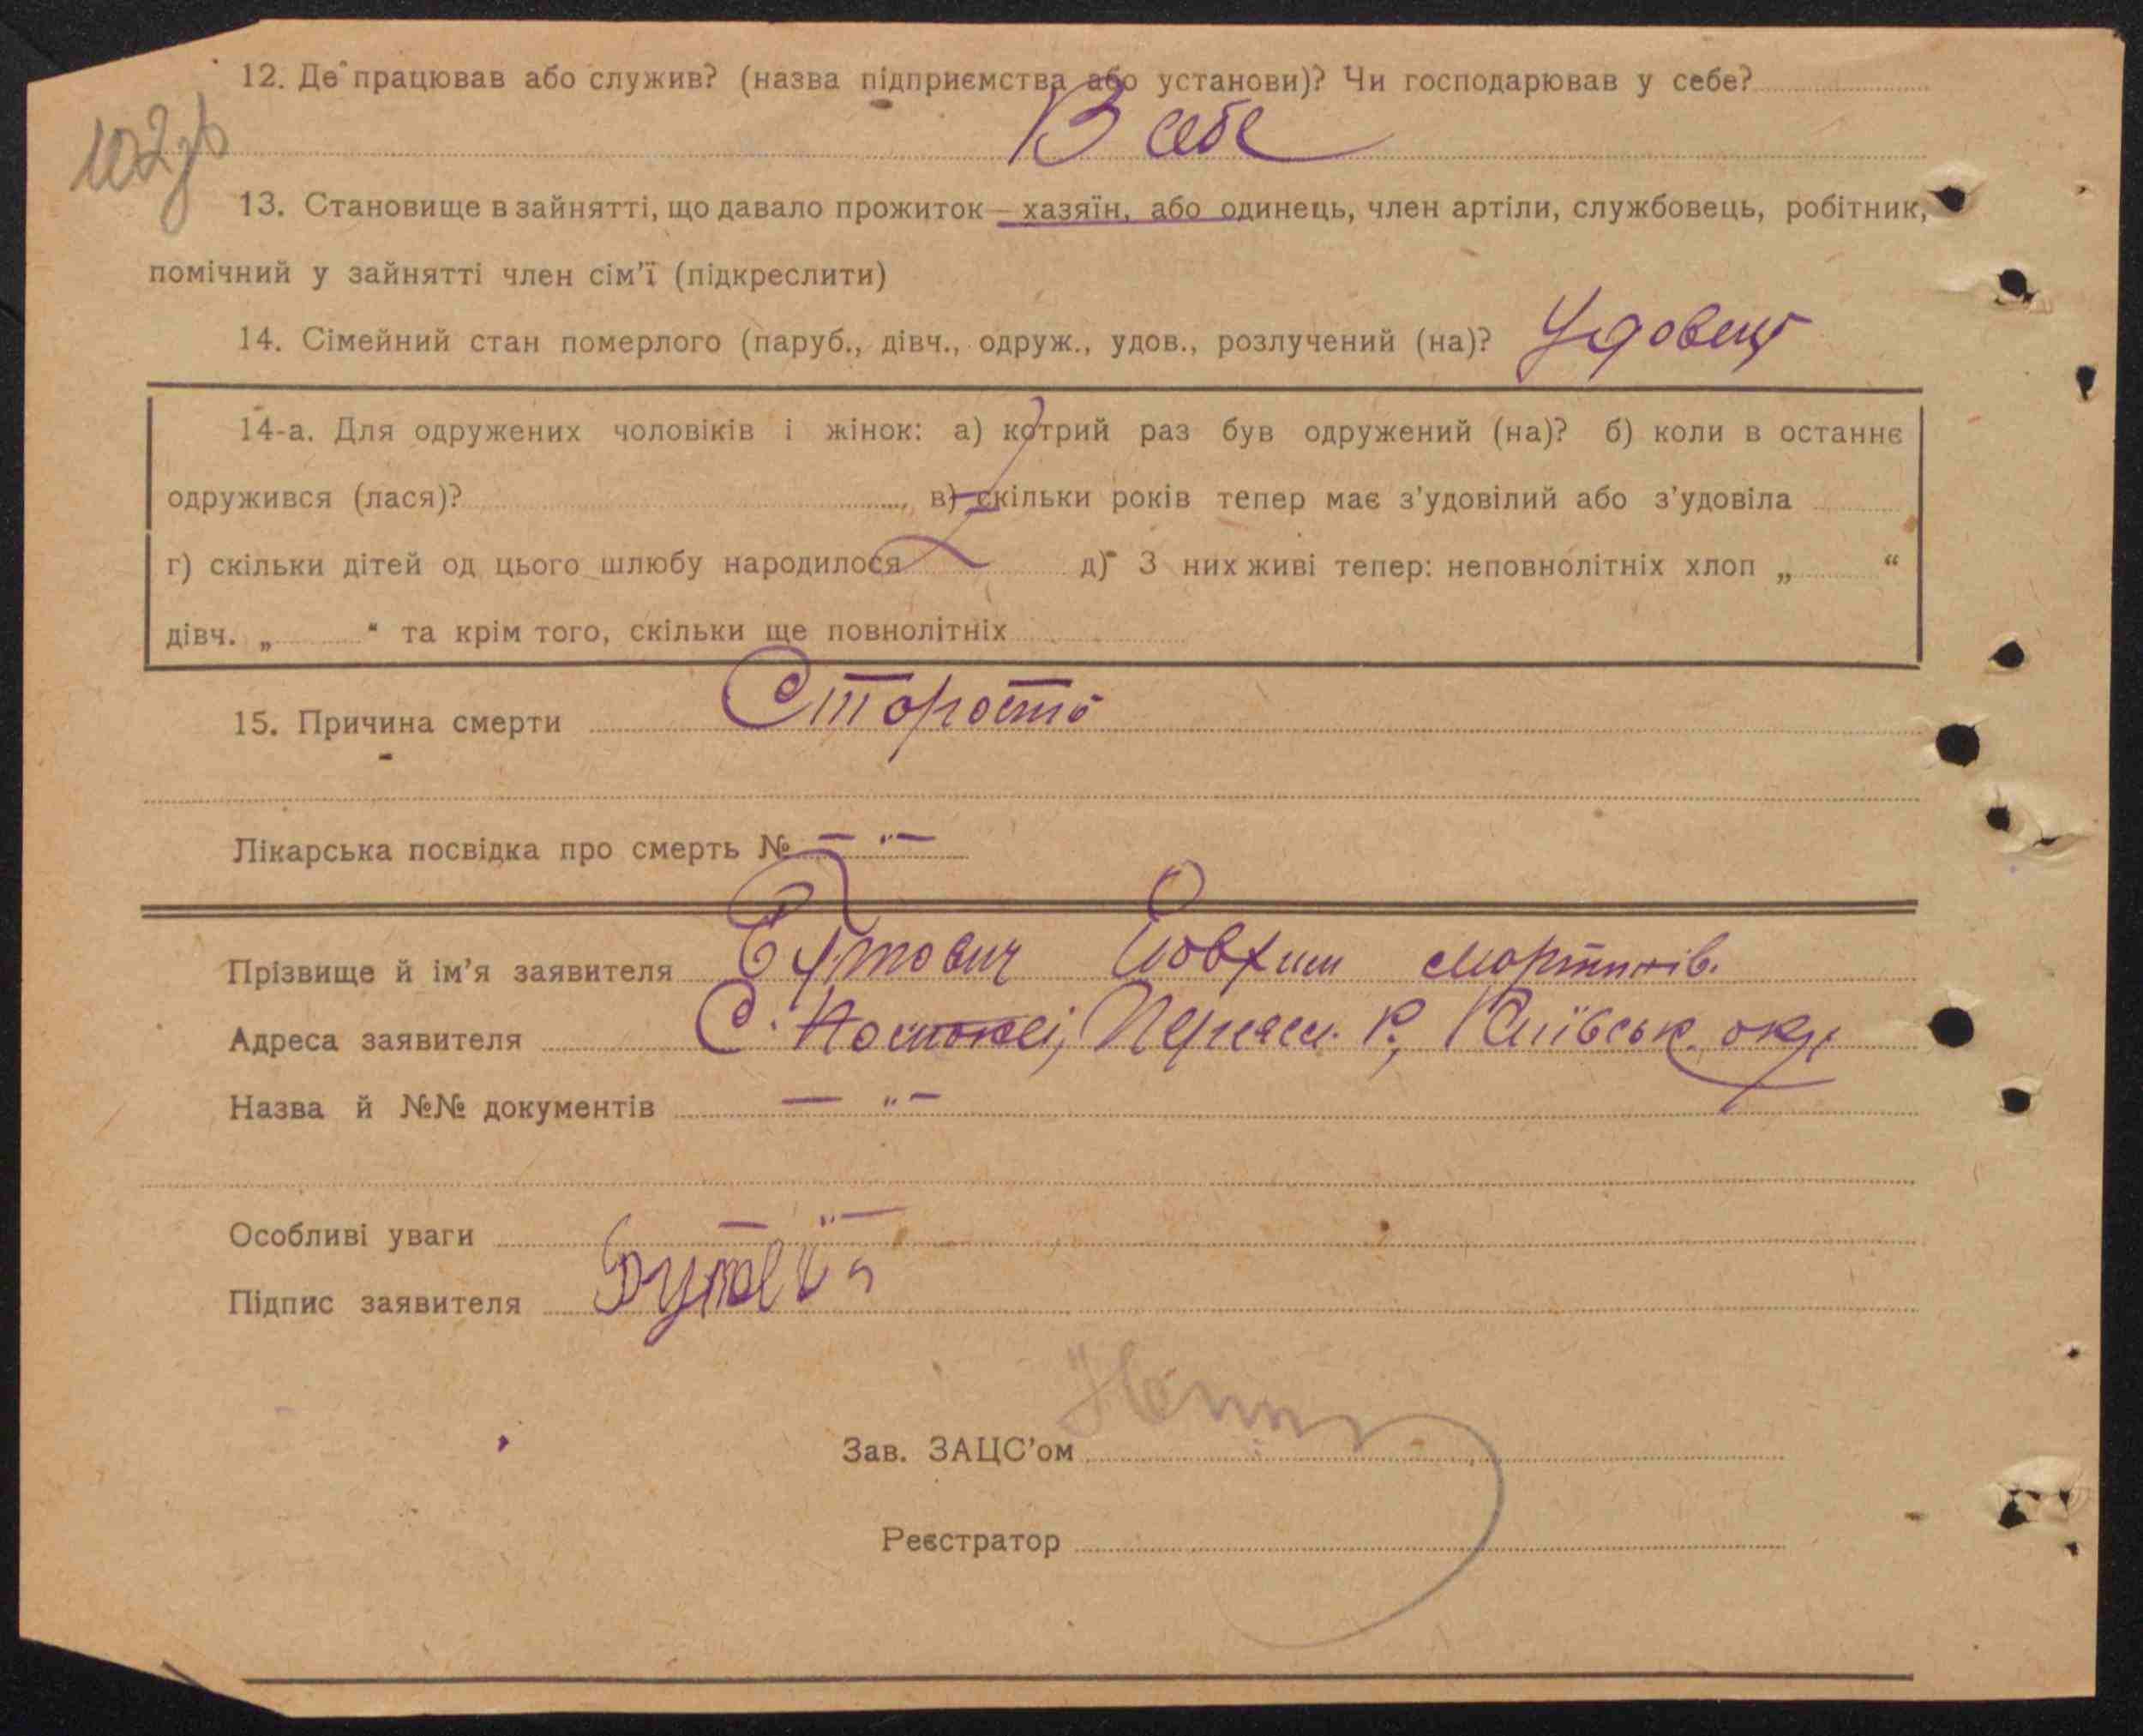 102зв
12. Де працював або служив? (назва підприємства або установи)? Чи господарював у себе?
В себе
13. Становище в зайнятті, що давало прожиток — хазяїн, або одинець, член артіли, службовець, робітник,
помічний у зайнятті член сім'ї (підкреслити)
14. Сімейний стан померлого (паруб., дівч., одруж., удов., розлучений (на)? Удовець
14-а. Для одружених чоловіків і жінок: а) котрий раз був одружений (на)? б) коли в останнє
одружився (лася)? в) скільки років тепер має з'удовілий або з'удовіла
г) скільки дітей од цього шлюбу народилося д) З них живі тепер: неповнолітніх хлоп „ “
дівч. „ “ та крім того, скільки ще повнолітніх
15. Причина смерти Старость
Лікарська посвідка про смерть № — „ —
Прізвище й ім'я заявителя Бутович Йовхим Мартинів.
Адреса заявителя С. Переясл. Р., Київськ. окр.
Назва й №№ документів — „ —
Особливі уваги — „ —
Підпис заявителя Бутович
Зав. ЗАЦС'ом
Реєстратор